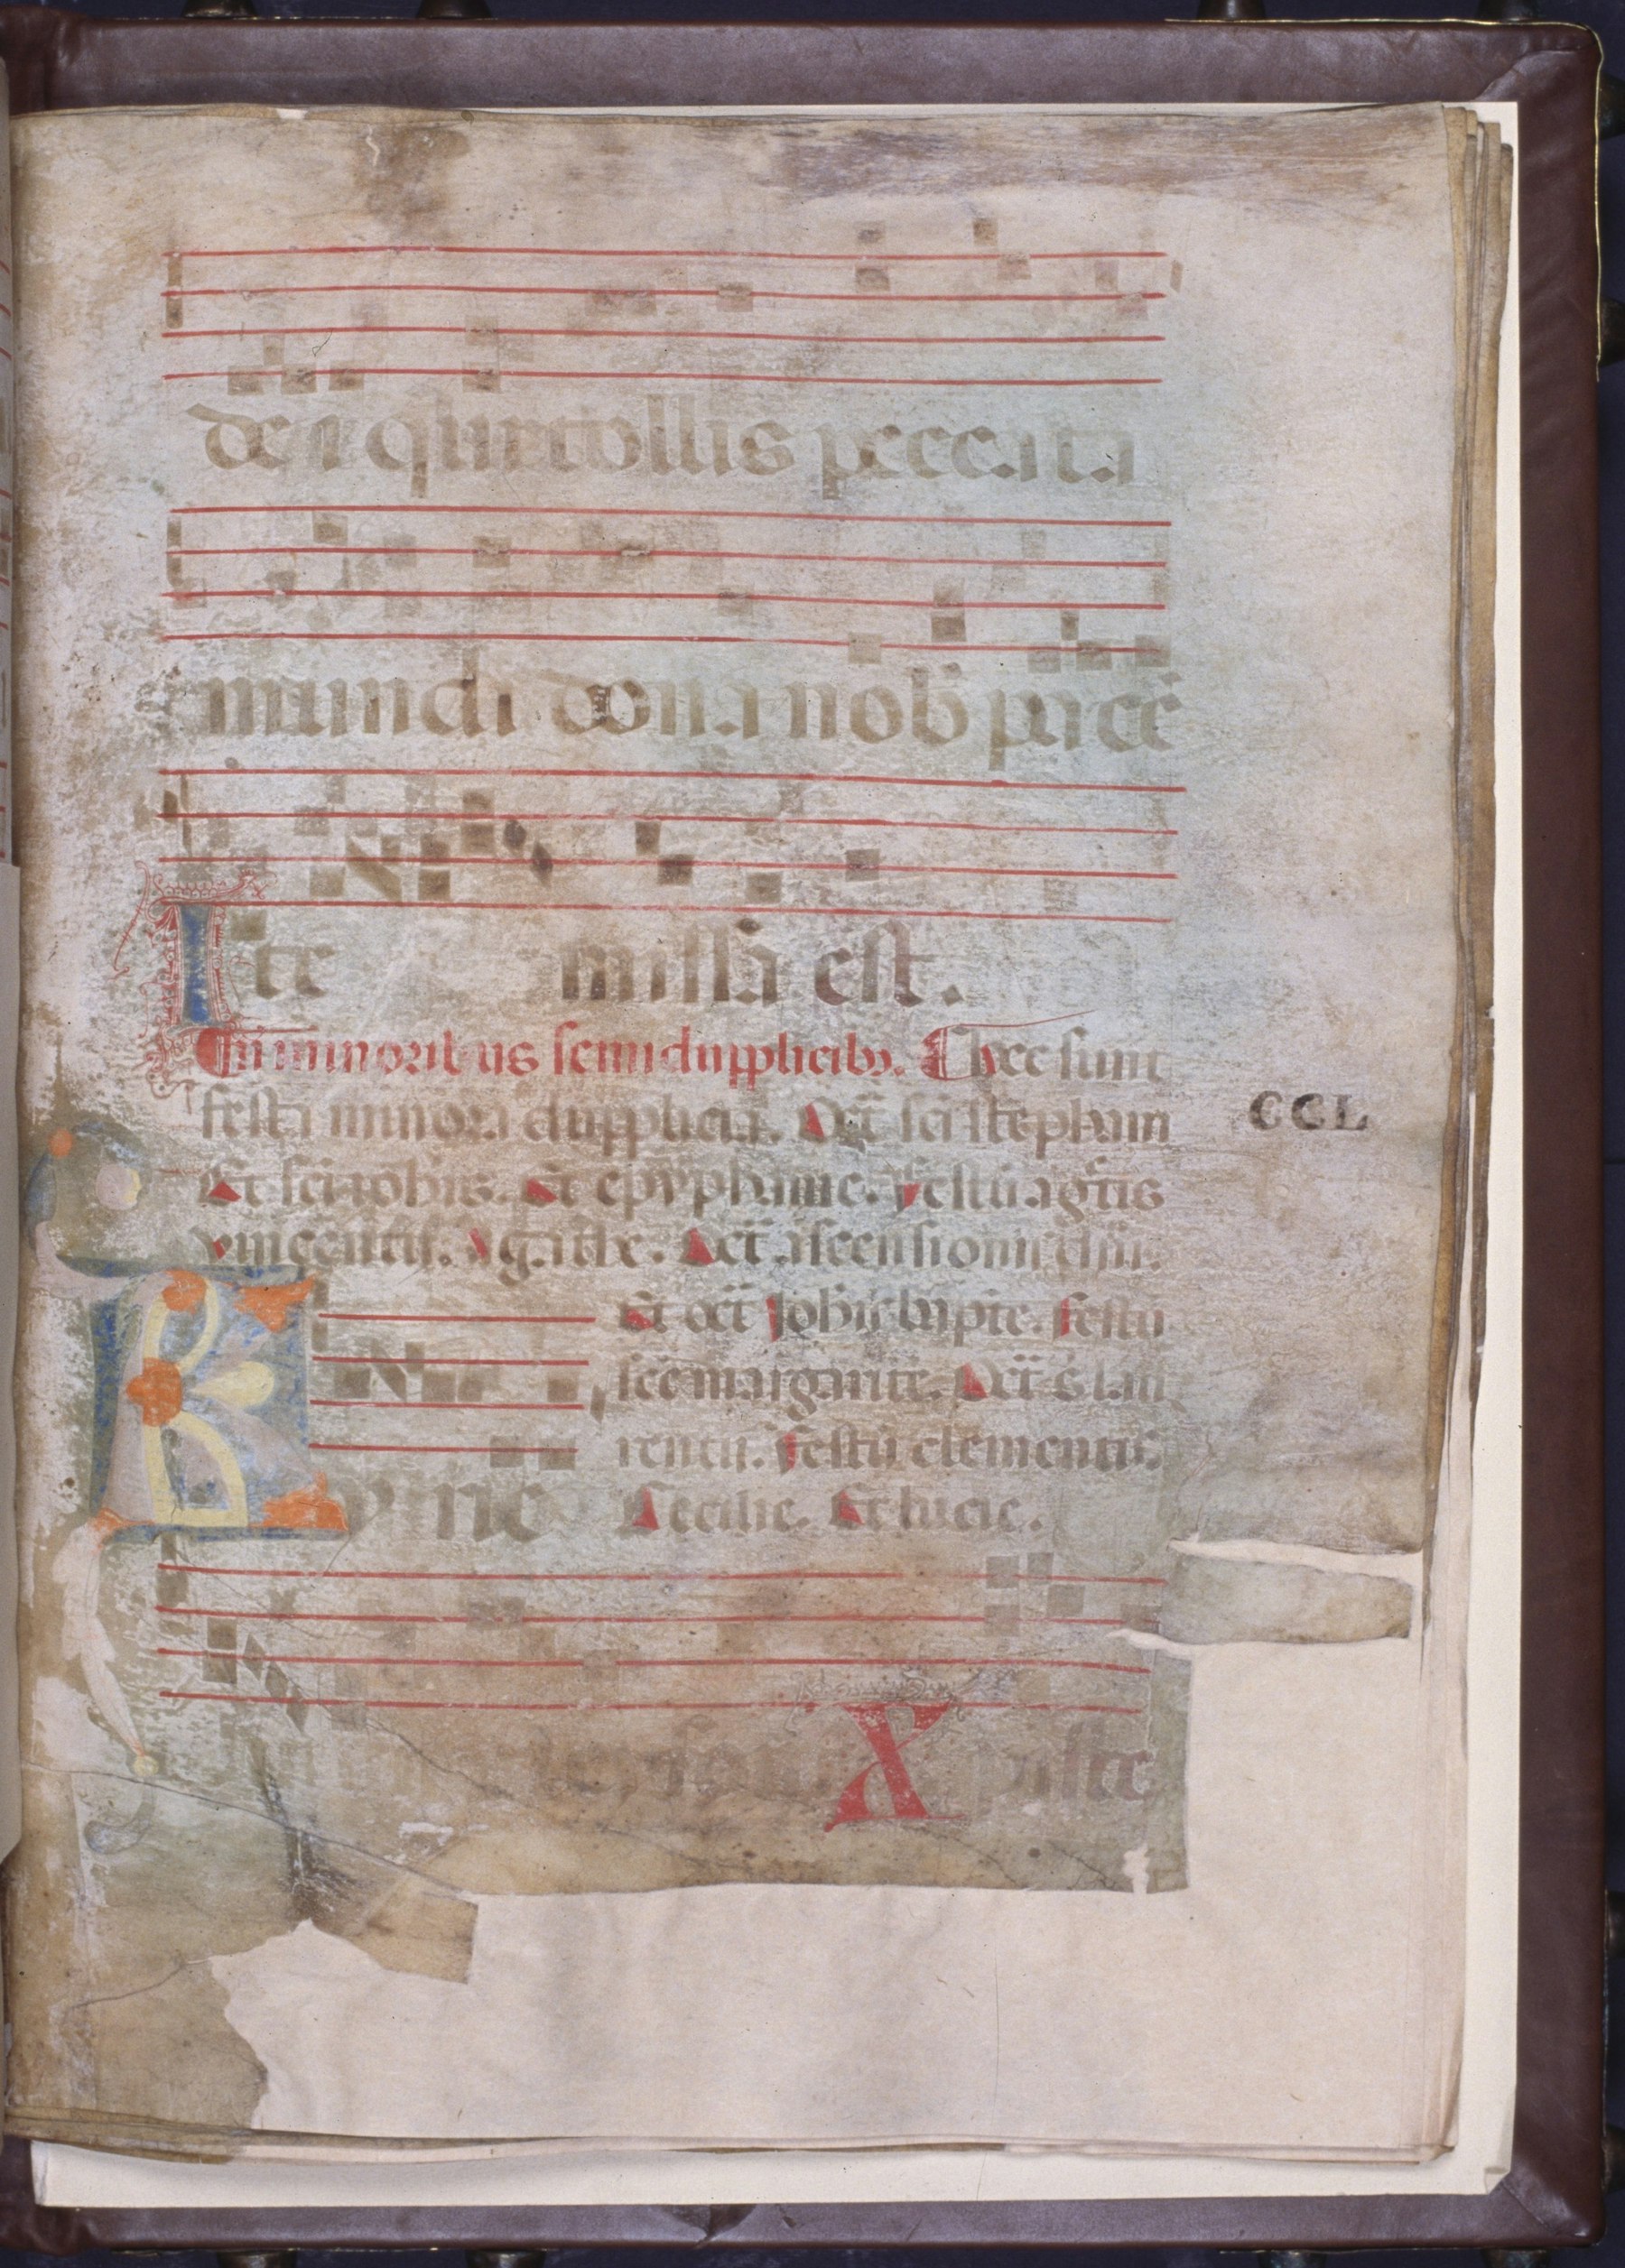 dei qui tollis peccata
mundi dona nob̄ pacē
Ite missa est.
In minoribus semidupplicibꝫ. hec sunt
festa minora dupplicia. Oct̄ sc̄i stephani
Et sc̄i ioh̄is. Et epyphanie. festū agn̄is
vincentii. agathe. Oct̄ ascensionis dn̄i.
CCL
Et oct̄ Joh̄is bapte. festū
sc̄e margarite. Oct̄ s̄ lau
rentii. festū clementis.
Cecilie. Et lucie.
Kyrie
X piste